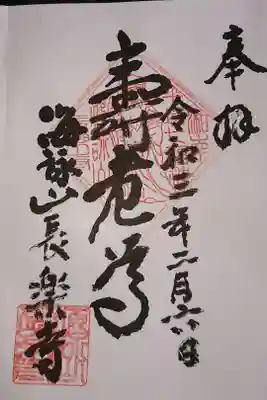 奉拝
令和三年二月六日
寿老尊
海詠山長楽寺